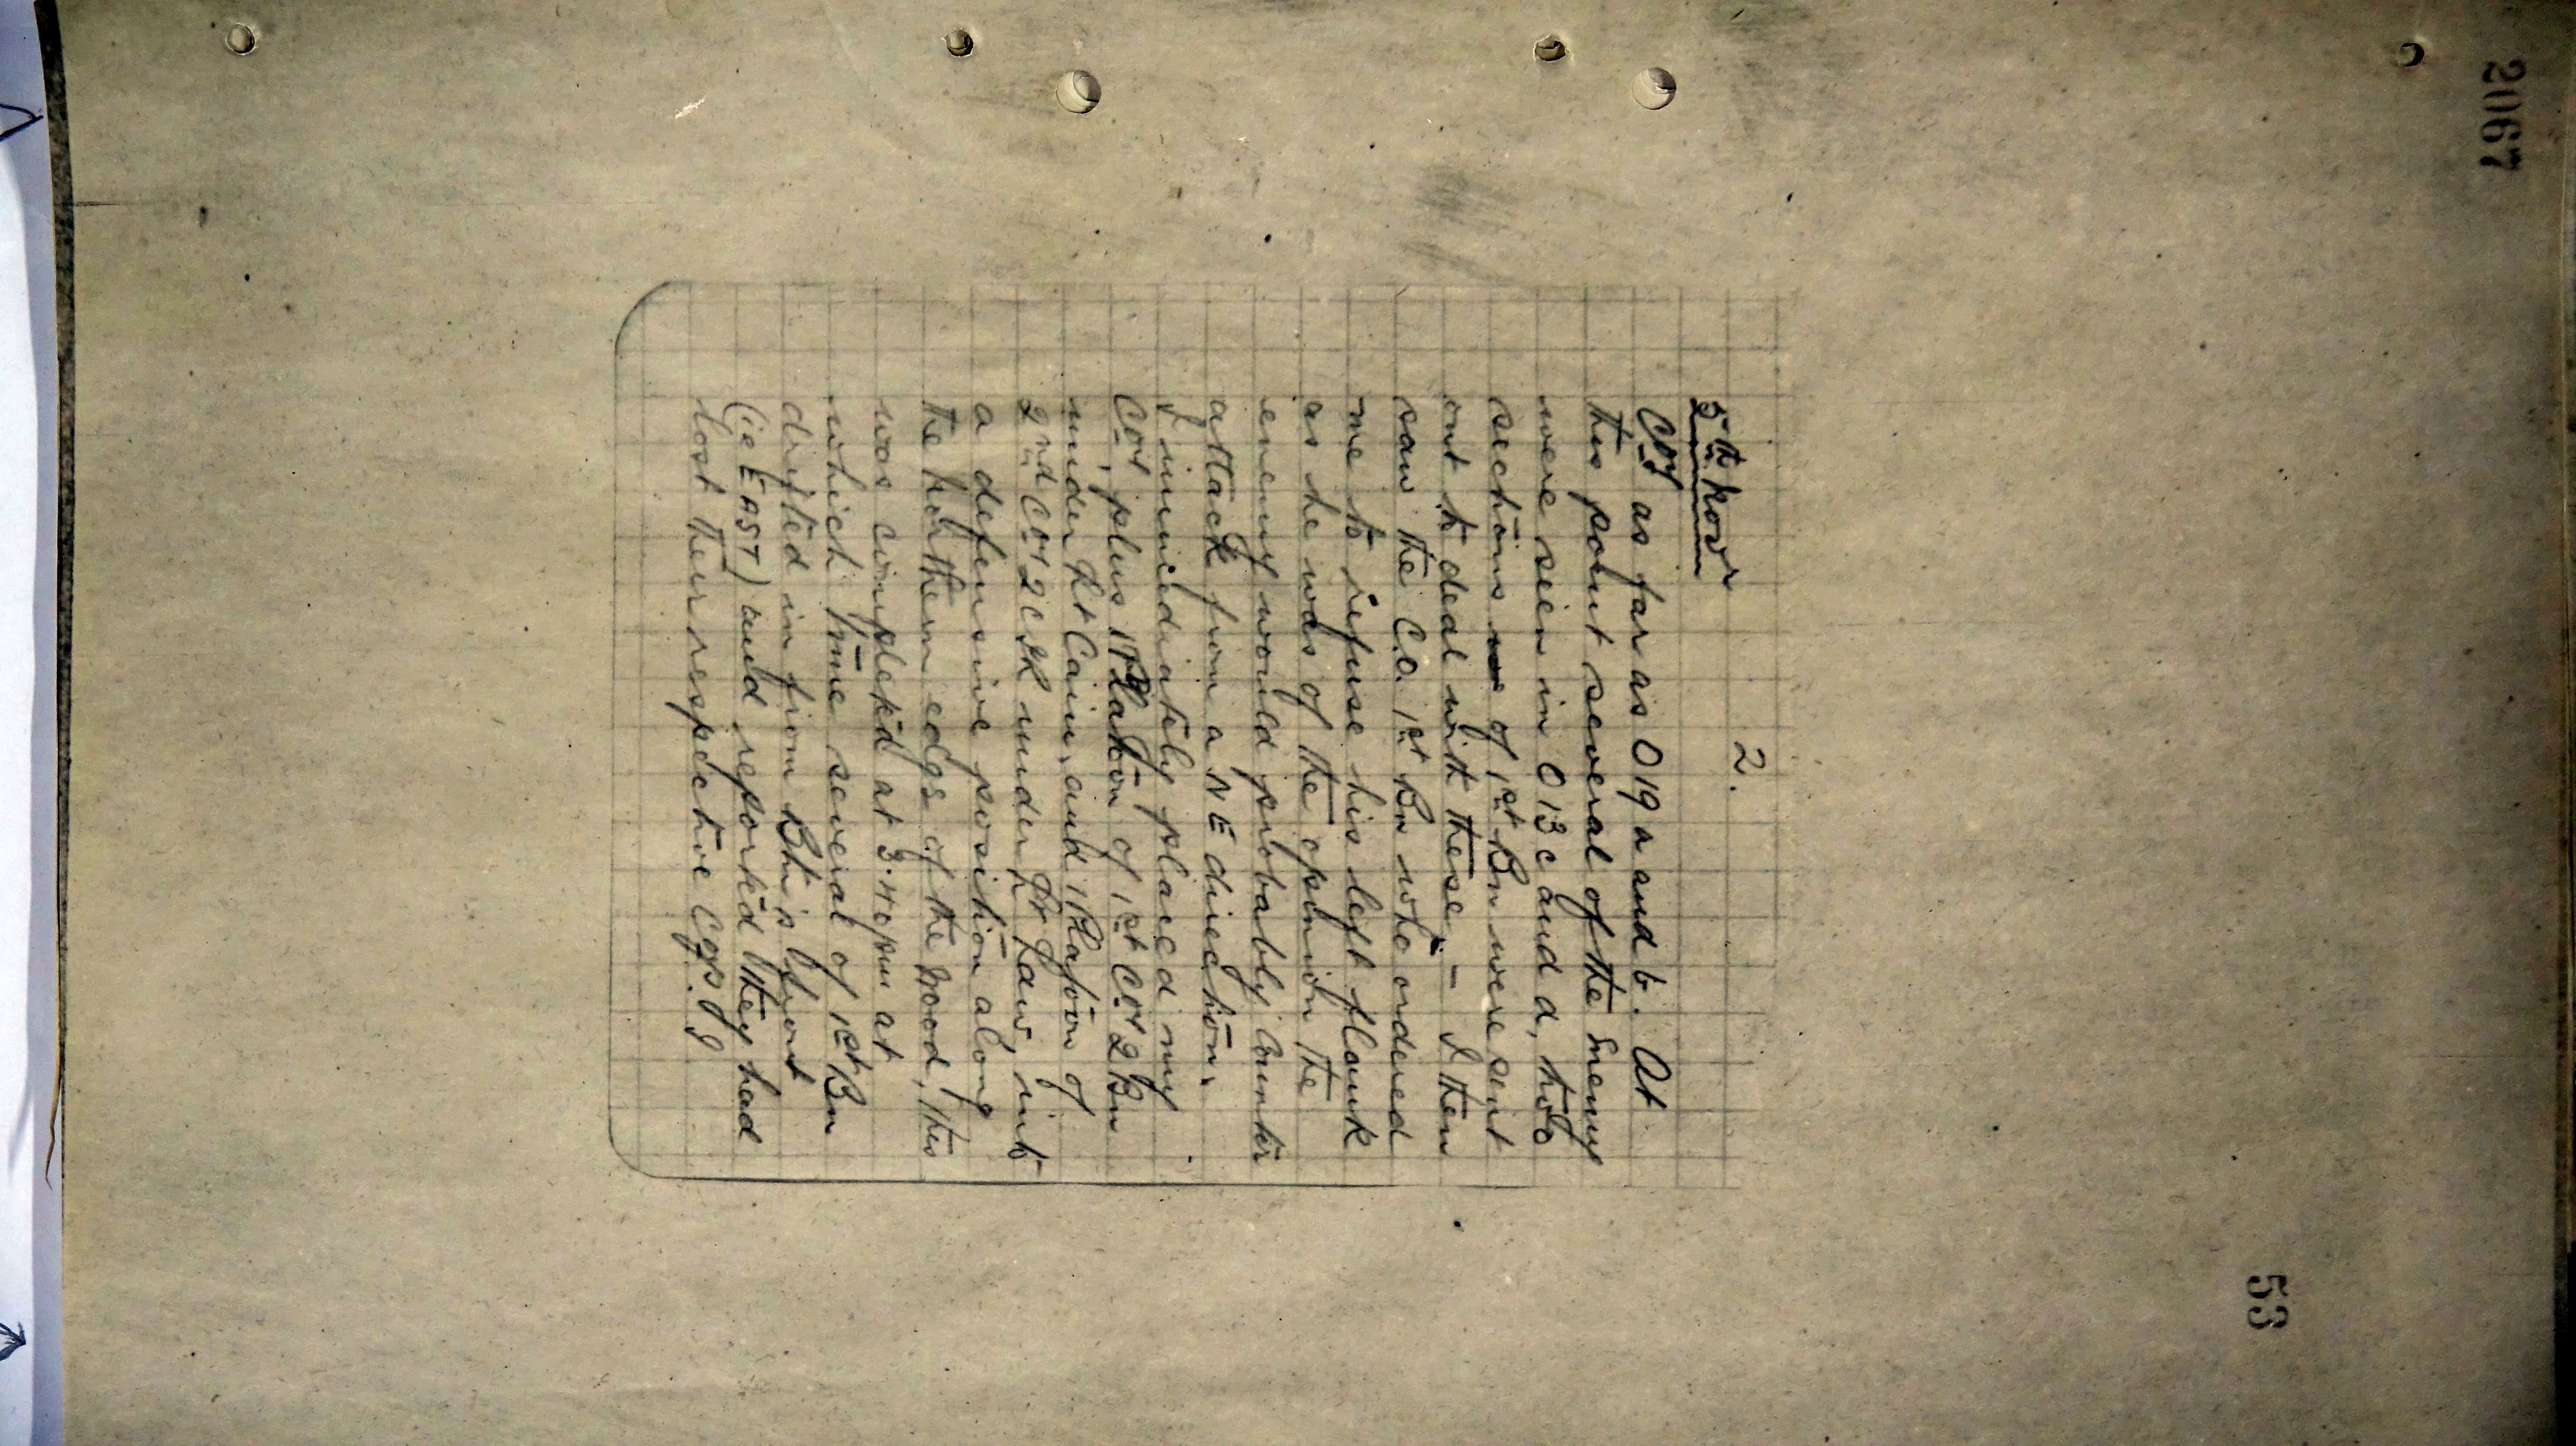 2067
53
2.
5th Novr
Coy as far as O19 a and b. At
this point several of the Enemy
were seen in O13 c and d, two
sections of 1st Bn were sent
out to deal with these. — I then
saw the C.O. 1st Bn who ordered
me to refuse his left flank
as he was of the opinion the
enemy would probably counter
attack from a NE direction.
I immediately placed my
Coy, plus 1 Platoon of 1st Coy 2 Bn
under Lt Cain, and 1 Platoon of
2nd Coy 2 C.I.R under Lt Law, into
a defensive position along
the northern edge of the wood, this
was completed at 3.40pm at
which time several of 1st Bn
drifted in from Bn's front
(ie EAST) and reported they had
lost their respective Coys. I